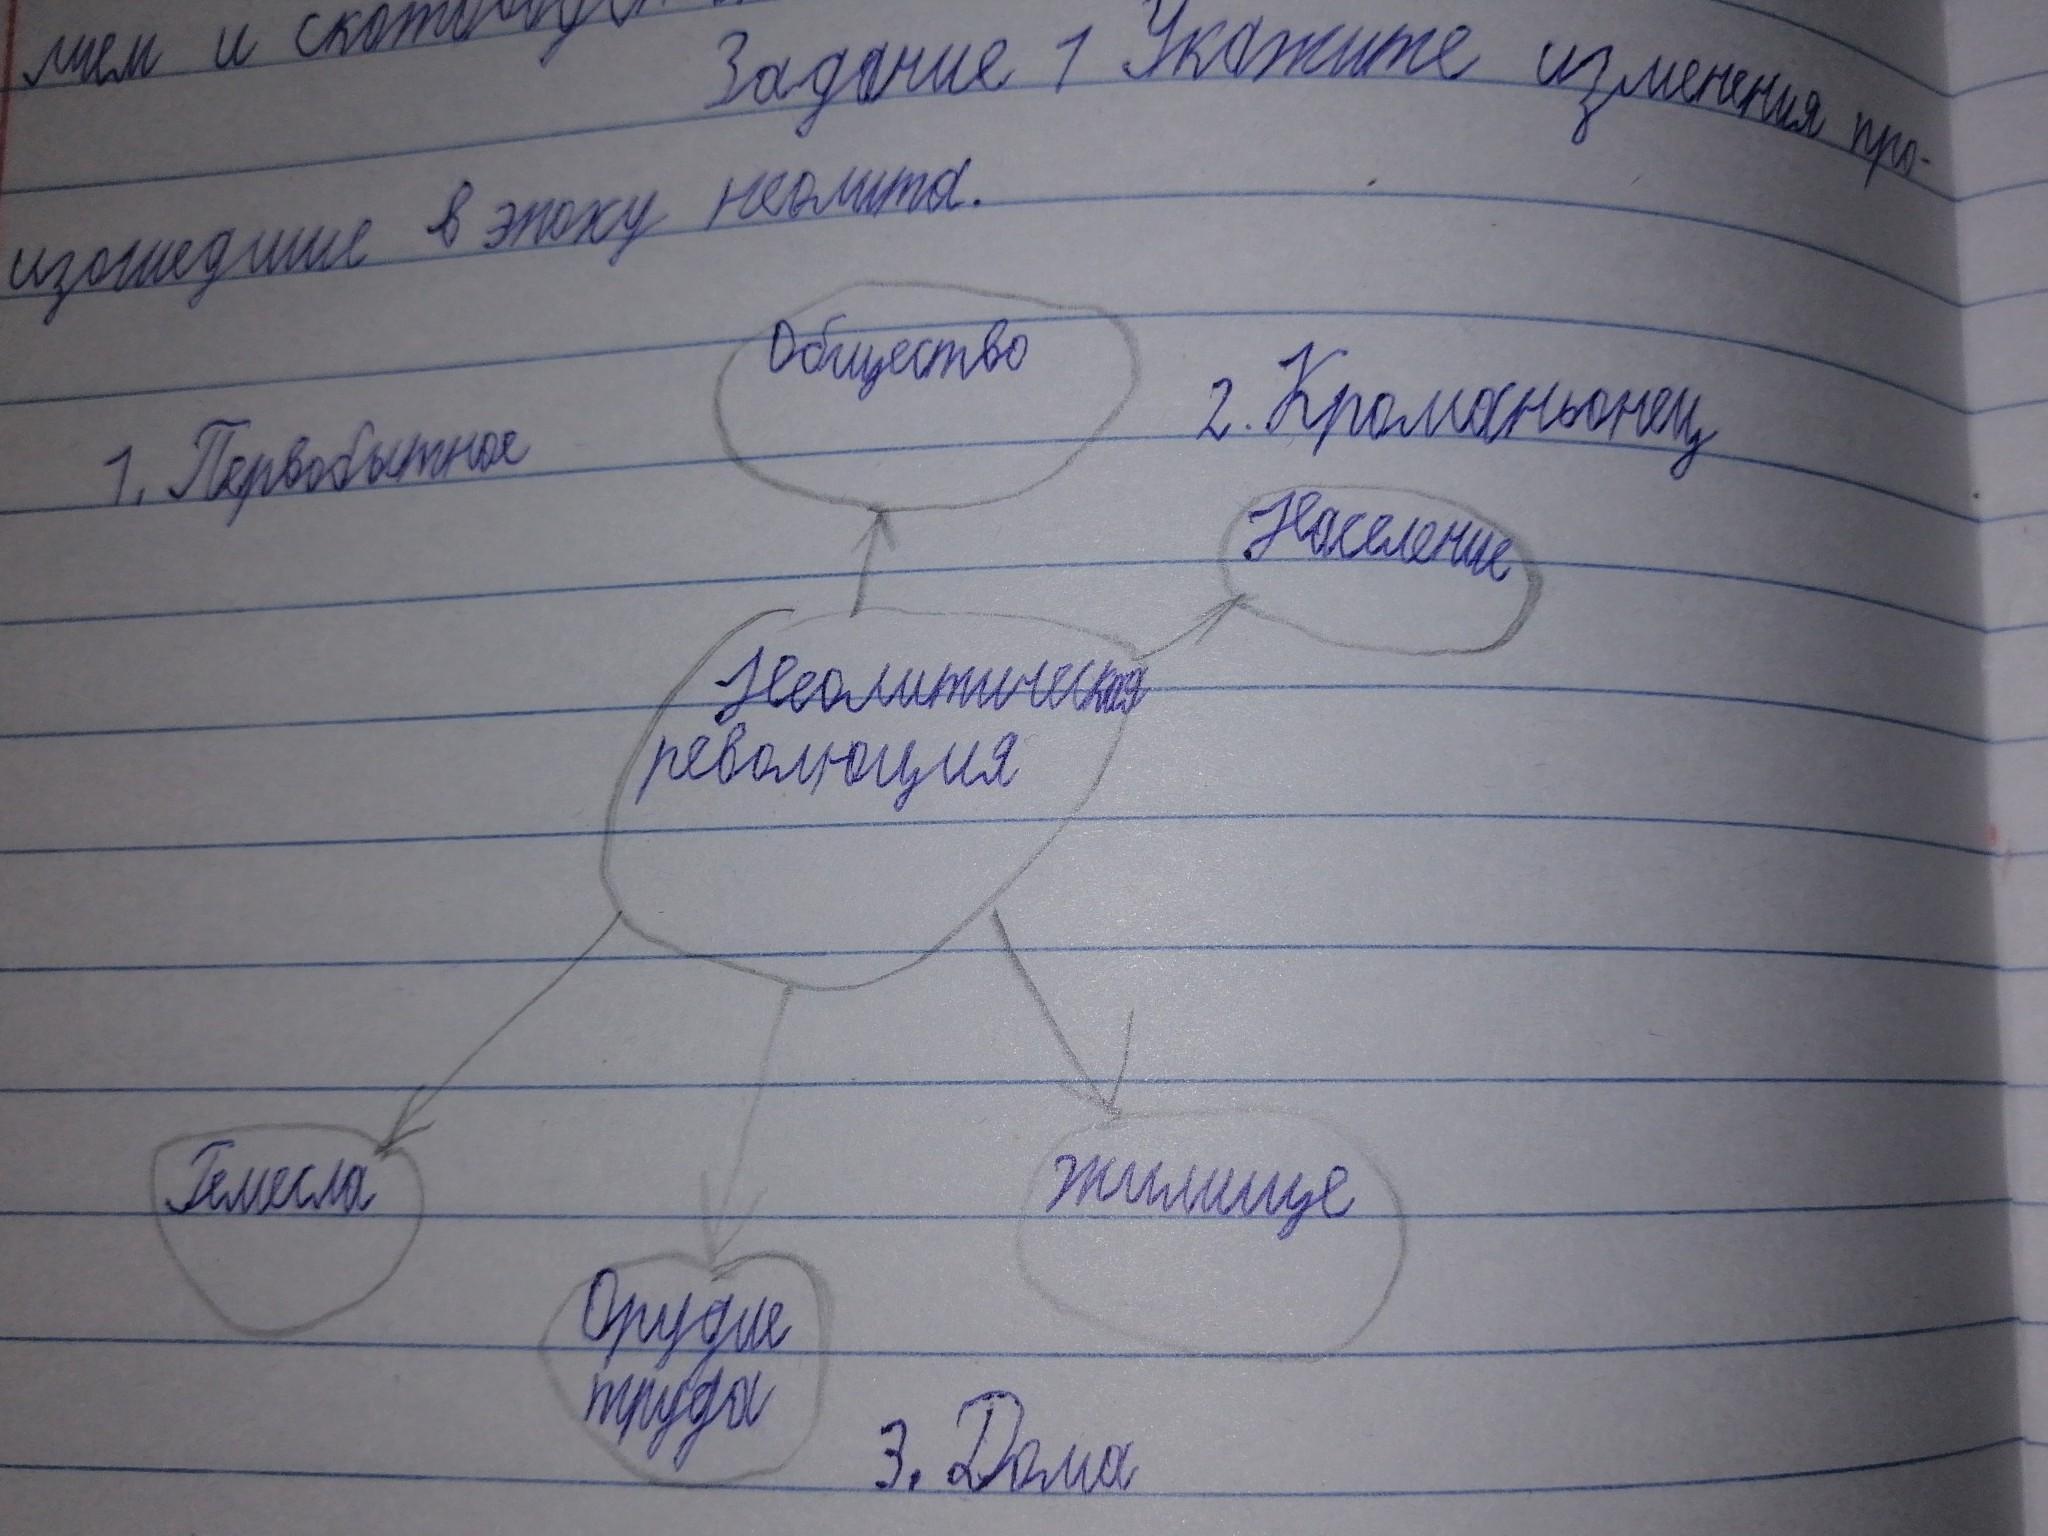 лием и
Задание 1 Укажите изменения про-
изошедшие в эпоху неолита.
Общество
2. Кроманьонец
1. Первобытное
Население
Неолитическая
революция
Гемесла
Жилище
Орудие
труда
3. Дома